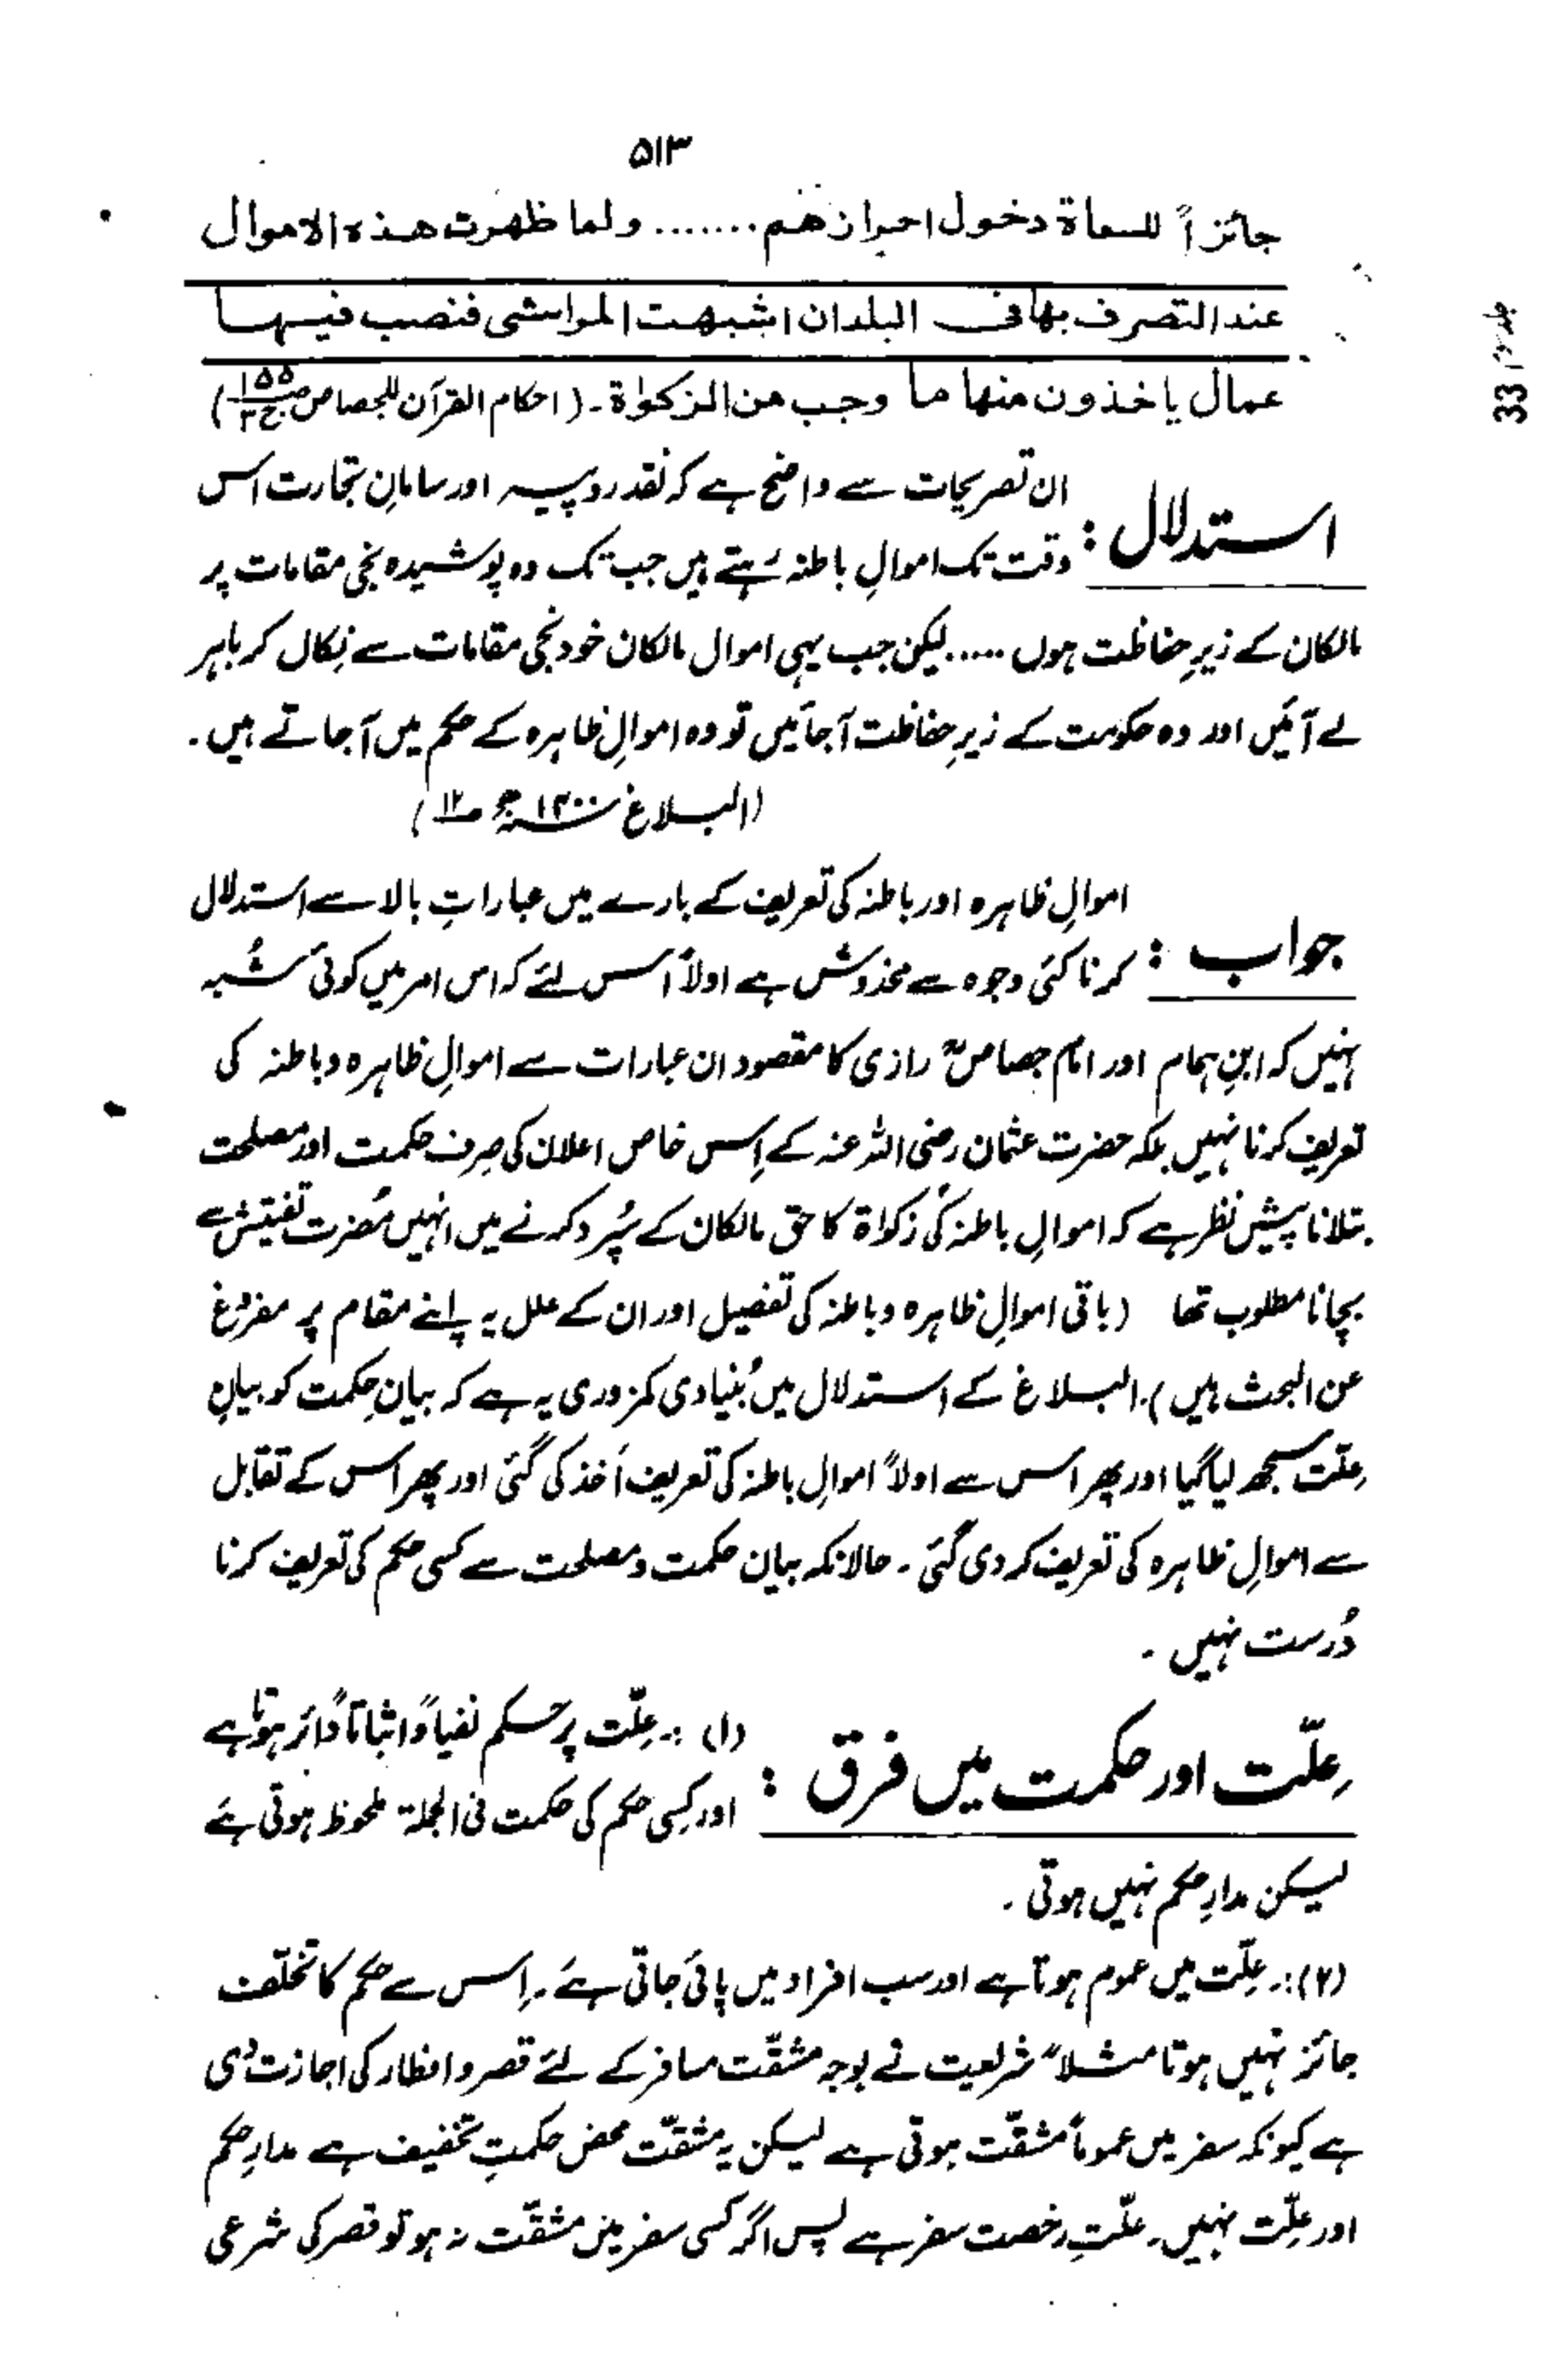 ۵۱۳
جائزاً للسعاة دخول احرازهم ....... ولما ظهرت هذه الاموال
عند التصرف بها فى البلدان اشبهت المواشى فنصب فيها
عمال ياخذون منها ما وجب من الزكواة۔ (احکام القرآن للجصاص ص۱۵۵ ج۳)
استدلال : ان تصریحات سے واضح ہے کہ نقد روپیہ اور سامانِ تجارت اس
وقت تک اموالِ باطنہ رہتے ہیں جب تک وہ پوشیدہ نجی مقامات پر
مالکان کے زیرِ حفاظت ہوں ..... لیکن جب یہی اموال مالکان خود نجی مقامات سے نکال کر باہر
لے آئیں اور وہ حکومت کے زیرِ حفاظت آجائیں تو وہ اموالِ ظاہرہ کے حکم میں آجاتے ہیں۔
(البلاغ ۱۴۰۰ھ ص۱۲)
جواب : اموالِ ظاہرہ اور باطنہ کی تعریف کے بارے میں عباراتِ بالا سے استدلال
کرنا کئی وجوہ سے مخدوش ہے اولاً اس لئے کہ اس امر میں کوئی شُبہ
نہیں کہ ابنِ ہمام اور امام جصاصؒ رازی کا مقصود ان عبارات سے اموالِ ظاہرہ و باطنہ کی
تعریف کرنا نہیں بلکہ حضرت عثمان رضی اللہ عنہ کے اِس خاص اعلان کی صِرف حکمت اور مصلحت
بتلانا پیشِ نظر ہے کہ اموالِ باطنہ کی زکواۃ کا حق مالکان کے سُپرد کرنے میں انہیں مُضرت تفتیش سے
بچانا مطلوب تھا (باقی اموالِ ظاہرہ و باطنہ کی تفصیل اور ان کے علل یہ اپنے مقام پر مفروغ
عن البحث ہیں)۔ البلاغ کے استدلال میں بُنیادی کمزوری یہ ہے کہ بیانِ حکمت کو بیانِ
عِلّت سمجھ لیا گیا اور پھر اس سے اولاً اموالِ باطنہ کی تعریف اَخذ کی گئی اور پھر اس کے تقابل
سے اموالِ ظاہرہ کی تعریف کر دی گئی۔ حالانکہ بیان حکمت و مصلحت سے کسی حکم کی تعریف کرنا
دُرست نہیں۔
عِلّت اور حکمت میں فرق : (۱) :۔ عِلّت پر حکم نفیاً و اثباتاً دائر ہوتا ہے
اور کِسی حکم کی حکمت فی الجملۃ ملحوظ ہوتی ہے
لیکن مدارِ حکم نہیں ہوتی۔
(۲) :۔ عِلّت میں عموم ہوتا ہے اور سب افراد میں پائی جاتی ہے۔ اِس سے حکم کا تخلّف
جائز نہیں ہوتا مثلاً شریعت نے بوجہ مشقّت مسافر کے لئے قصر و افطار کی اجازت دی
ہے کیونکہ سفر میں عموماً مشقّت ہوتی ہے لیکن یہ مشقّت محض حکمتِ تخفیف ہے مدارِ حکم
اور عِلّت نہیں۔ علّتِ رخصت سفر ہے پس اگر کسی سفر میں مشقّت نہ ہو تو قصر کی شرعی
33